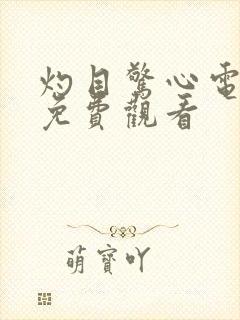 灼目驚心電
免費觀看
萌寶吖